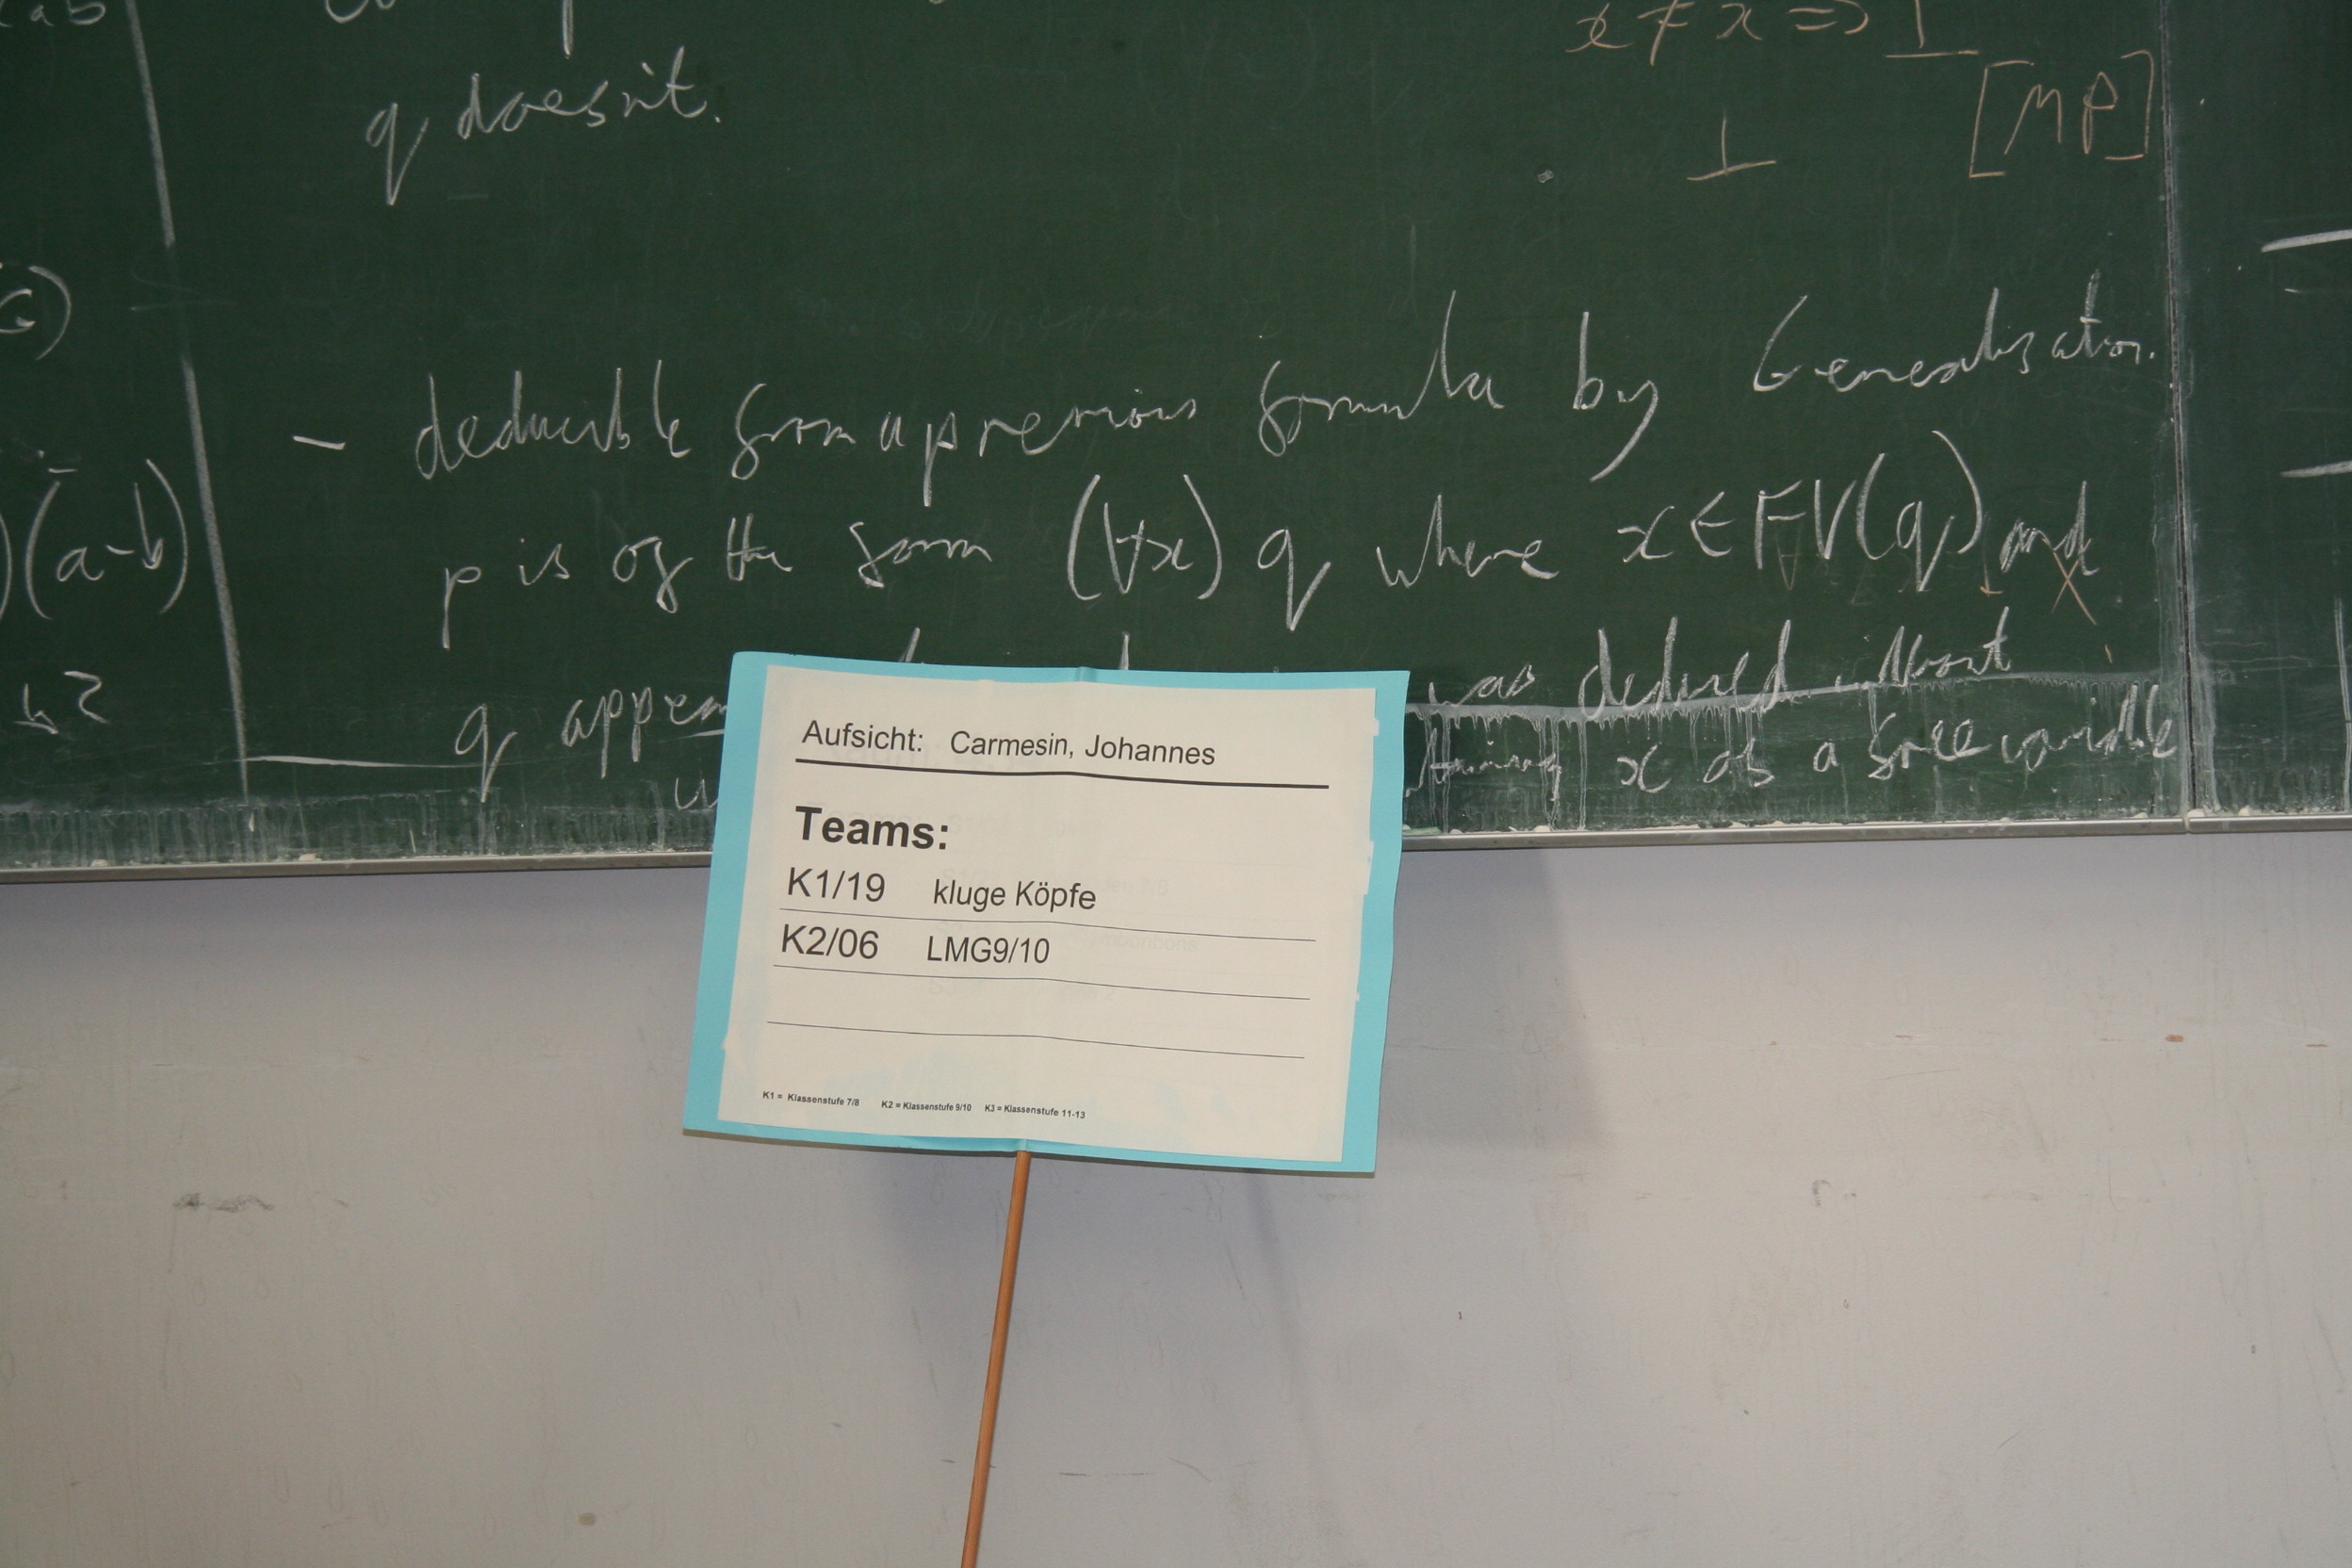 q doesn't.
x ≠ x => ⊥
⊥ [MP]
(a-b)
- deducible from a previous formula by Generalisation.
p is of the form (∀x) q where x ∈ FV(q) and
q appea
was deduced without
x as a free variable
Aufsicht: Carmesin, Johannes
Teams:
K1/19 kluge Köpfe
K2/06 LMG9/10
K1 = Klassenstufe 7/8 K2 = Klassenstufe 9/10 K3 = Klassenstufe 11-13